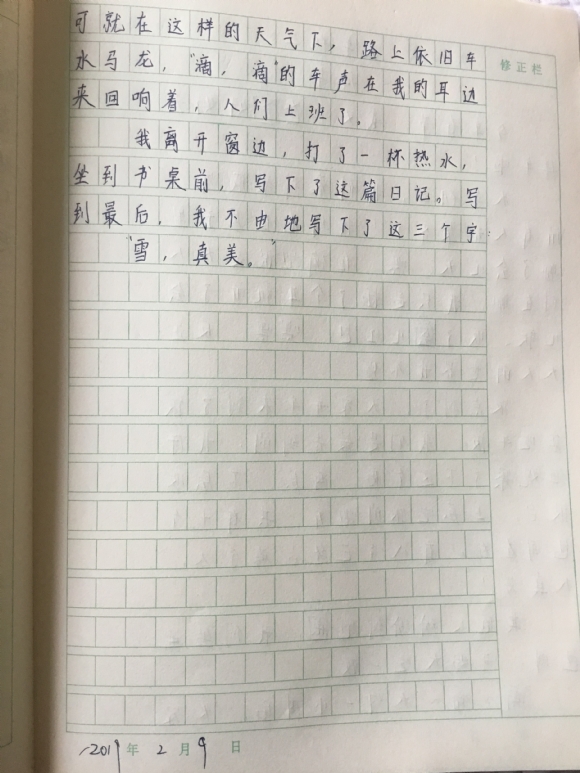 可就在这样的天气下，路上依旧车
修正栏
水马龙，“滴，滴”的车声在我的耳边
来回响着，人们上班了。
我离开窗边，打了一杯热水，
坐到书桌前，写下了这篇日记。写
到最后，我不由地写下了这三个字：
“雪，真美。”
2019年2月9日